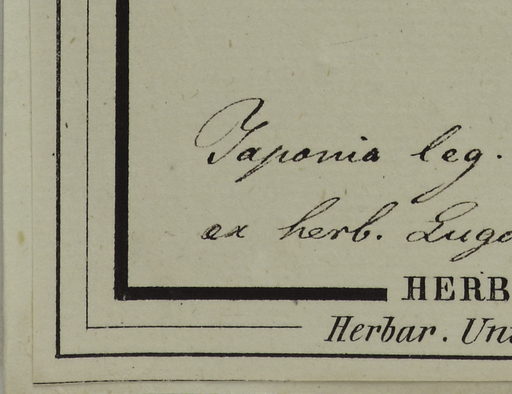 Japonia leg.
ex herb. Lugd
HERB
Herbar. Uni